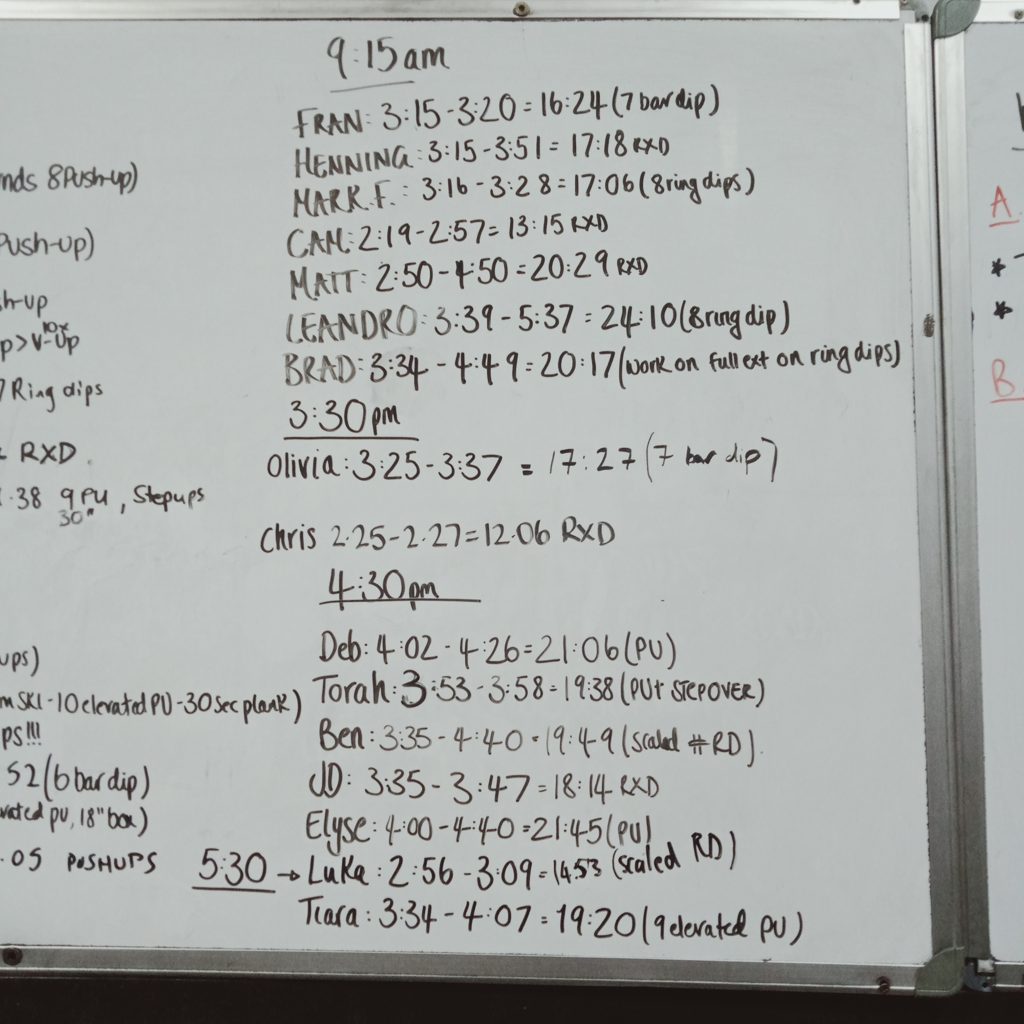 9:15am
FRAN: 3:15-3:20=16:24(7 bar dip)
HENNING: 3:15-3:51=17:18 RXD
MARK.F.: 3:16-3:28=17:06(8ring dips)
CAM: 2:19-2:57=13:15 RXD
MATT: 2:50-4:50=20:29 RXD
LEANDRO: 3:39-5:37=24:10(8ring dip)
BRAD: 3:34-4:49=20:17(work on full ext on ring dips)
3:30pm
Olivia: 3:25-3:37 = 17:27(7 bar dip)
Chris 2.25-2.27=12.06 RXD
4:30pm
Deb: 4:02-4:26=21:06(PU)
Torah: 3:53-3:58=19:38(PU+ STEPOVER)
Ben: 3:35-4:40=19:49(scaled #RD).
JD: 3:35-3:47=18:14 RXD
Elyse: 4:00-4:40=21:45(PU)
5:30 → Luka: 2:56-3:09=14:53 (scaled RD)
Tiara: 3:34-4:07=19:20(9elevated PU)
nds 8Push-up)
Push-up)
sh-up
p>V-Up 10x
7 Ring dips
RXD.
.38 9 PU, Stepups
30"
ups)
m SKI-10 elevated PU-30sec plank)
PS!!!
52(6 bar dip)
vated pu, 18" box)
.05 PUSHUPS
A.
*
*
B